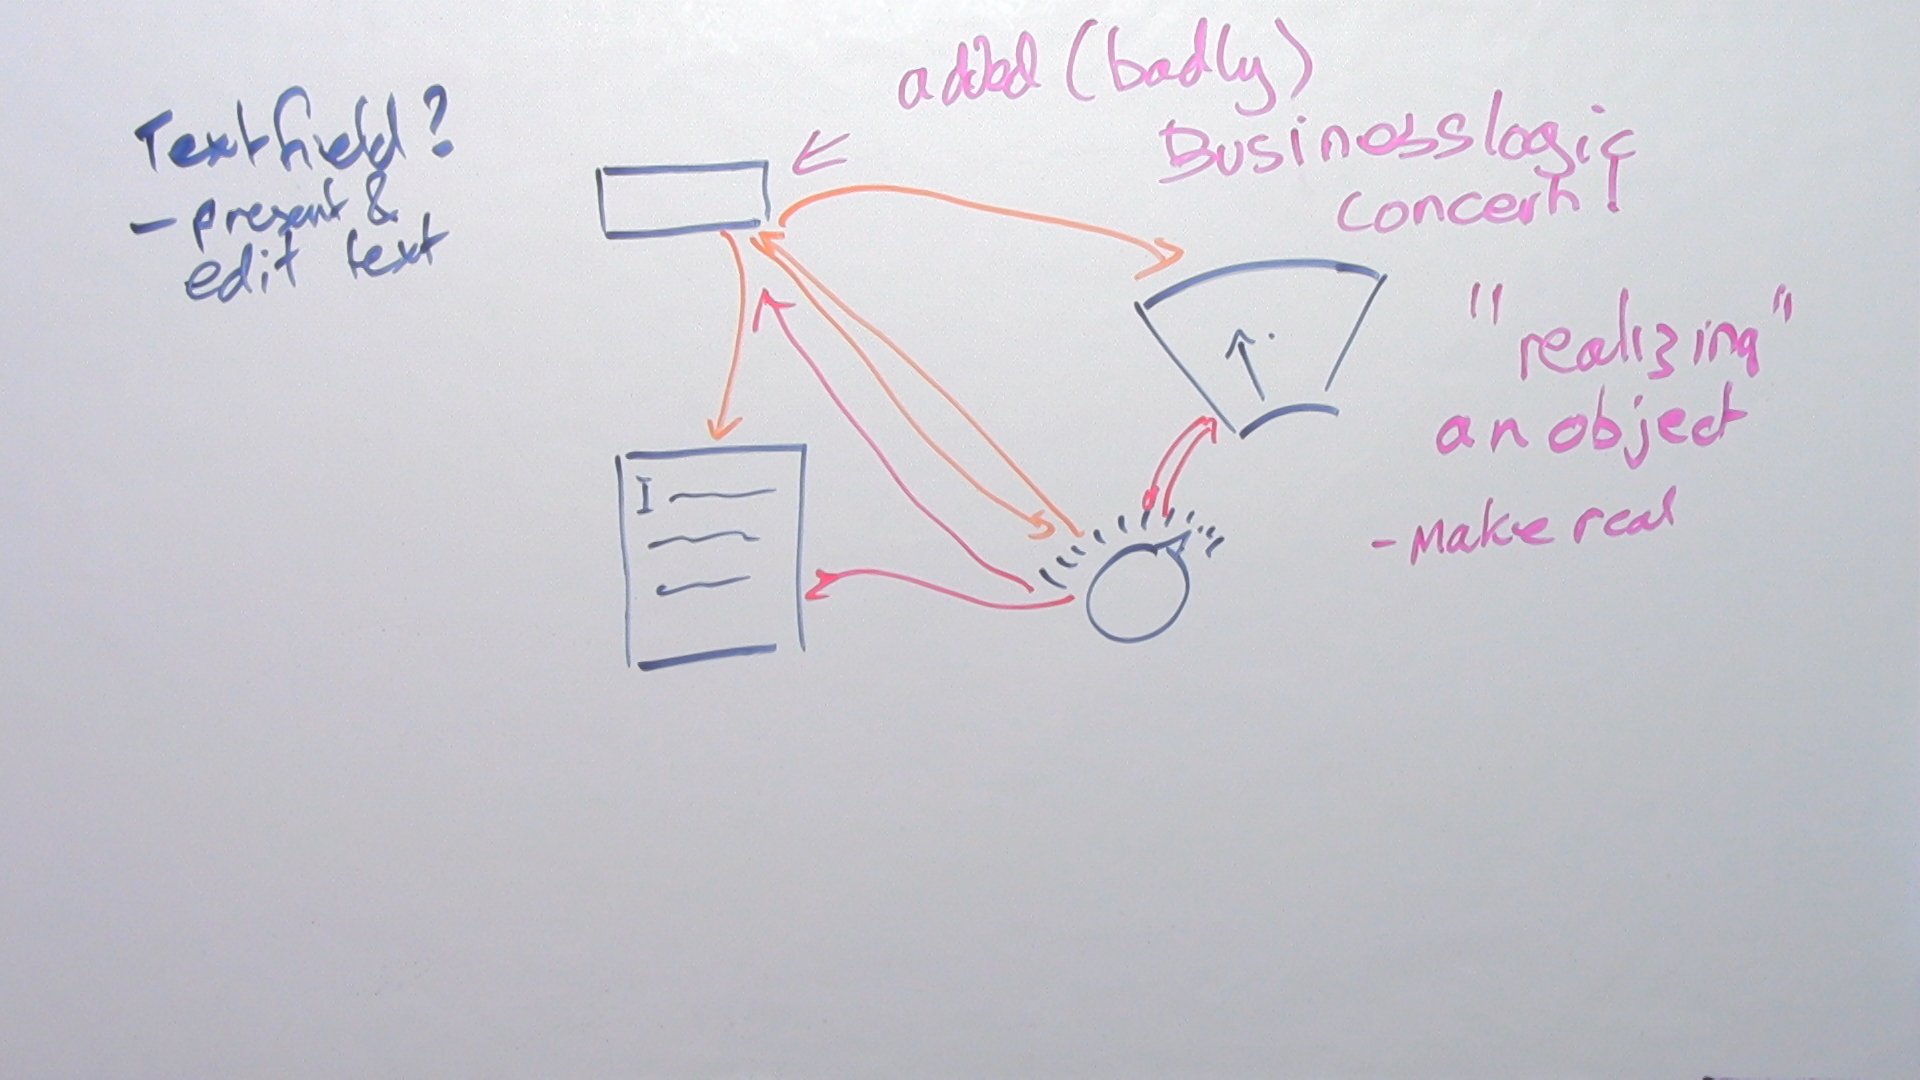 Textfield?
- present &
edit text
added (badly)
Business logic
concern!
"realizing"
an object
- make real